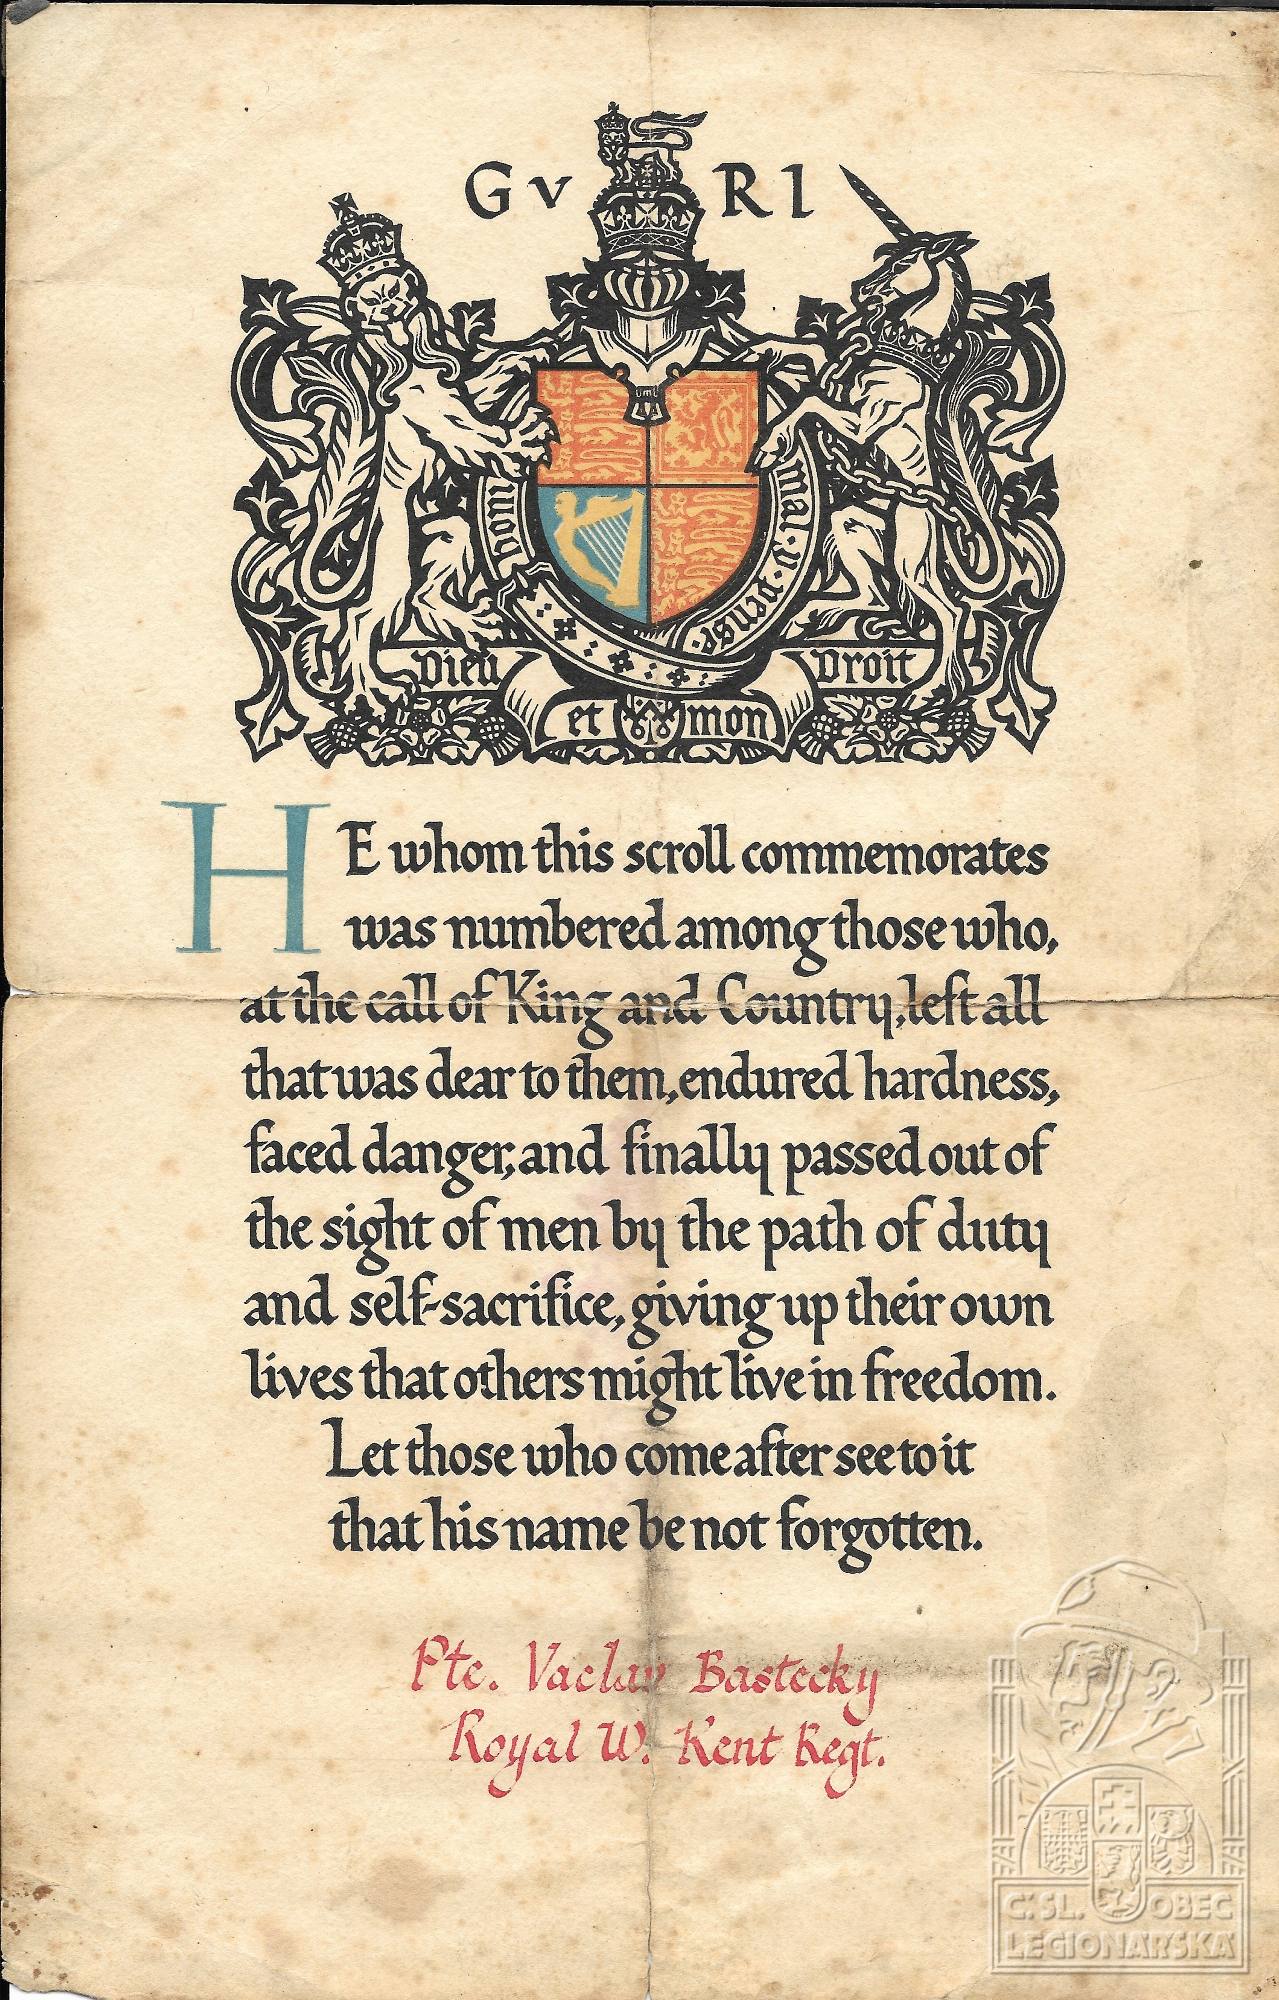 G V R I
hom mal y pense
Dieu Droit
et mon
HE whom this scroll commemorates
was numbered among those who,
at the call of King and Country, left all
that was dear to them, endured hardness,
faced danger, and finally passed out of
the sight of men by the path of duty
and self-sacrifice, giving up their own
lives that others might live in freedom.
Let those who come after see to it
that his name be not forgotten.
Pte. Vaclav Bastecky
Royal W. Kent Regt.
Č.SL. OBEC
LEGIONÁŘSKÁ